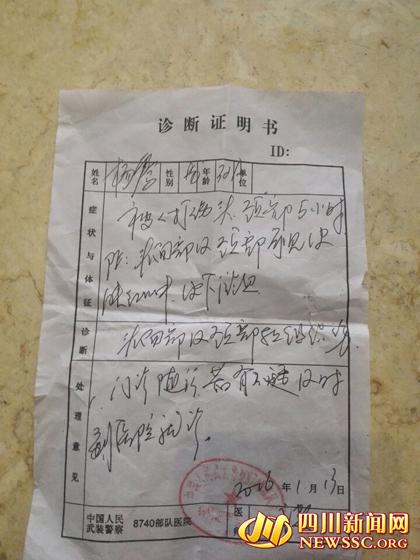 诊断证明书
ID:
姓名 杨 性别 男 年龄 单位
症状与体征
被人打伤头、颈部5小时
阶：头面部及颈部可见皮
肤红肿，皮下淤血
诊断
头面部及颈部软组织伤
处理意见
门诊随诊 若有不适及时
到医院就诊。
2016年1月13日
中国人民武装警察
8740部队医院
医师
四川新闻网
WWW.NEWSSC.ORG